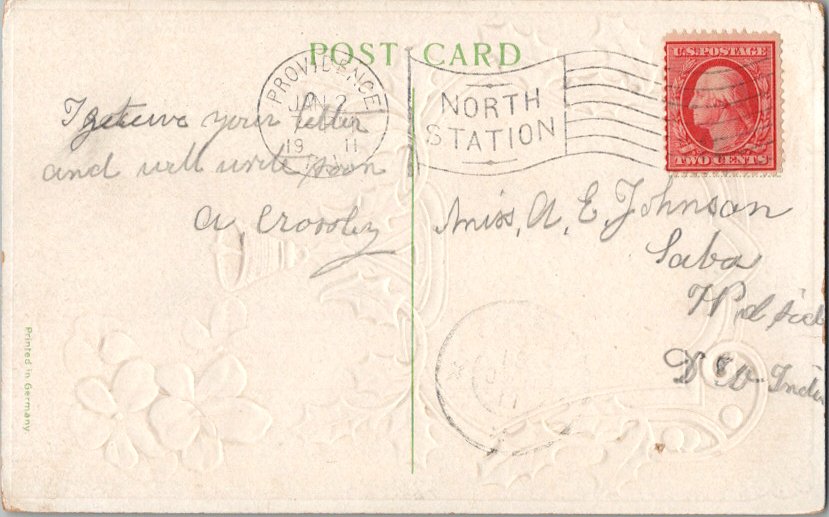 POST CARD
PROVIDENCE
JAN 2
19 11
NORTH
STATION
U.S. POSTAGE
TWO CENTS
I your letter
and will write soon
A. Crossley
Miss, A, E, Johnson
Saba
D W Indi
11
Printed in Germany.